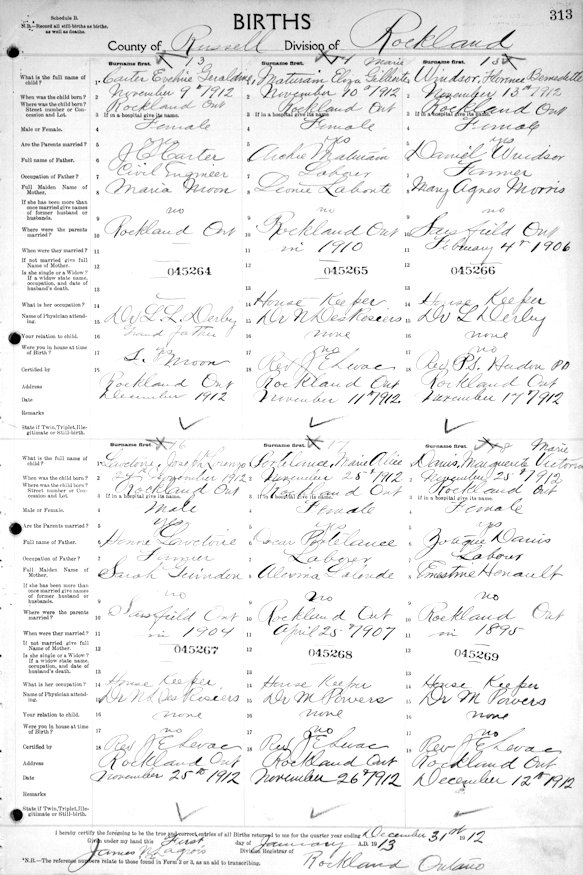 313
Schedule B.
N.B.—Record all still-births as births, as well as deaths.
BIRTHS
County of Russell Division of Rockland
Surname first. 13 Surname first. 14 Marie Surname first. 15
What is the full name of child? 1 Carter Geraldine Materain Eliza Windsor, Florence Bernadette
When was the child born? 2 November 9th 1912 November 10th 1912 November 13th 1912
Where was the child born? Street number or Concession and Lot. 3 Rockland Ont Rockland Ont Rockland Ont
If in a hospital give its name. If in a hospital give its name. If in a hospital give its name.
Male or Female. 4 Female Female Female
Are the Parents married? 5 yes yes yes
Full name of Father. 6 Carter Archie Materain Daniel Windsor
Occupation of Father? 7 Civil Engineer Labour Farmer
Full Maiden Name of Mother. 8 Maria Moon Leonie Labonte Mary Agnes Morris
If she has been more than once married give names of former husband or husbands. 9 no no no
Where were the parents married? 10 Rockland Ont Rockland Ont Sarsfield Ont
When were they married? 11 in 1910 February 4th 1906
If not married give full Name of Mother. 12
Is she single or a Widow? If a widow state name, occupation, and date of husband's death. 13 045264 045265 045266
What is her occupation? 14 House Keeper House Keeper
Name of Physician attending. 15 Dr L. L. Derby Dr N DesRosiers Dr L Derby
Your relation to child. 16 Grand father none none
Were you in house at time of Birth? 17 yes no no
Certified by Moon Rev J E Levac Rev P.S. Hudon PP
Address Rockland Ont Rockland Ont Rockland Ont
Date December 1912 November 11th 1912 November 17th 1912
Remarks
State if Twin, Triplet, Illegitimate or Still-birth.
Surname first. 16 Surname first. 17 Surname first. 18 Marie
What is the full name of child? 1 Joseph Marie Alice Danis, Marguerite Victoria
When was the child born? 2 November 1912 November 25th 1912 November 25th 1912
Where was the child born? Street number or Concession and Lot. 3 Rockland Ont Rockland Ont Rockland Ont
If in a hospital give its name. If in a hospital give its name. If in a hospital give its name.
Male or Female. 4 Male Female Female
Are the Parents married? 5 yes yes yes
Full name of Father. 6 Oscar Danis
Occupation of Father? 7 Farmer Laborer Labour
Full Maiden Name of Mother. 8 Sarah Guindon Lalonde Ernestine Henault
If she has been more than once married give names of former husband or husbands. 9 no no no
Where were the parents married? 10 Sarsfield Ont Rockland Ont Rockland Ont
When were they married? 11 in 1904 April 25th 1907 in 1895
If not married give full Name of Mother. 12
Is she single or a Widow? If a widow state name, occupation, and date of husband's death. 13 045267 045268 045269
What is her occupation? 14 House Keeper House Keeper House Keeper
Name of Physician attending. 15 Dr N L Des Rosiers Dr M Powers Dr M Powers
Your relation to child. 16 none none none
Were you in house at time of Birth? 17 no no no
Certified by 18 Rev J E Levac Rev J E Levac Rev J E Levac
Address Rockland Ont Rockland Ont Rockland Ont
Date November 25th 1912 November 26th 1912 December 12th 1912
Remarks
State if Twin, Triplet, Illegitimate or Still-birth.
I hereby certify the foregoing to be the true and correct entries of all Births returned to me for the quarter year ending December 31st 1912
Given under my hand this First day of January A.D. 1913
James Division Registrar of Rockland Ontario
*N.B.—The reference numbers relate to those found in Form 2 or 3, as an aid to transcribing.